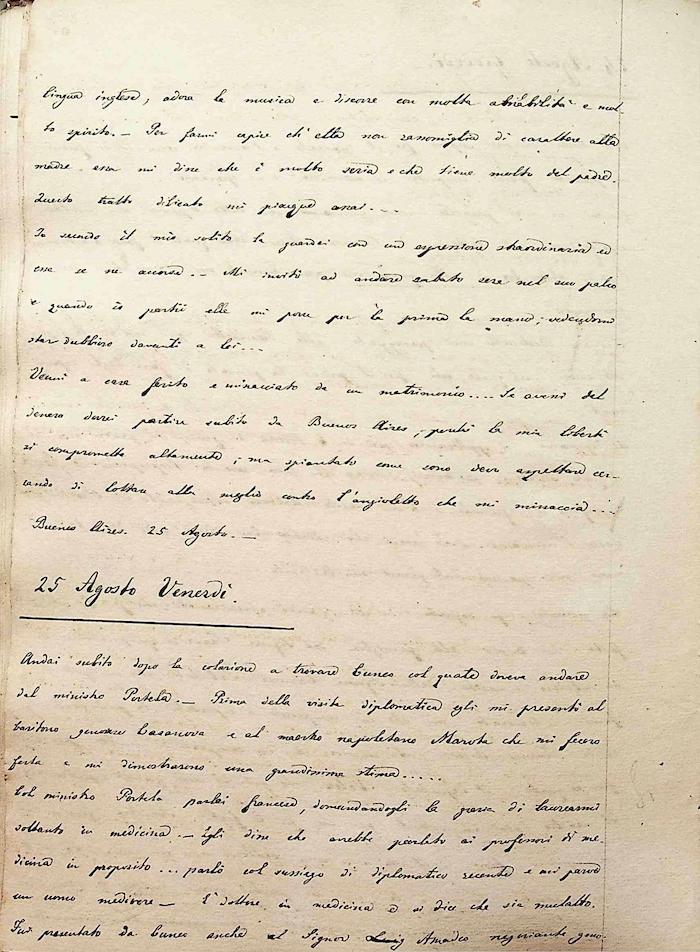 lingua inglese; adora la musica e discorre con molta abilità e mol-
to spirito. — Per farmi capire ch'ella non rassomiglia di carattere alla
madre essa mi disse che è molto seria e che tiene molto del padre.
Questo tratto dilicato mi piacque assai...
Io secondo il mio solito la guardai con un espressione straordinaria ed
essa se ne accorse. — Mi invitò ad andare sabato sera nel suo palco
e quando io partii elle mi porse per la prima la mano; vedendomi
star dubbioso davanti a lei...
Venni a casa ferito e minacciato da un matrimonio.... Se avessi del
denaro dovrei partire subito da Buenos Aires, perchè la mia libertà
si compromette altamente; ma spiantato come sono devo aspettare cer-
cando di lottare alla meglio contro l'angioletto che mi minaccia....
Buenos Aires. 25 Agosto. —
25 Agosto Venerdì.
Andai subito dopo la colazione a trovare Cuneo col quale doveva andare
dal ministro Portela. — Prima della visita diplomatica egli mi presentò al
baritono genovese Casanova e al maestro napoletano Marota che mi fecero
festa e mi dimostrarono una grandissima stima.....
Col ministro Portela parlai francese, domandandogli la grazia di laurearmi
soltanto in medicina. — Egli disse che avrebbe parlato ai professori di me-
dicina in proposito... parlò col sussiego di diplomatico recente e mi parve
un uomo mediocre — È dottore in medicina e si dice che sia mulatto.
Fui presentato da Cuneo anche al Signor Amadeo negoziante geno-